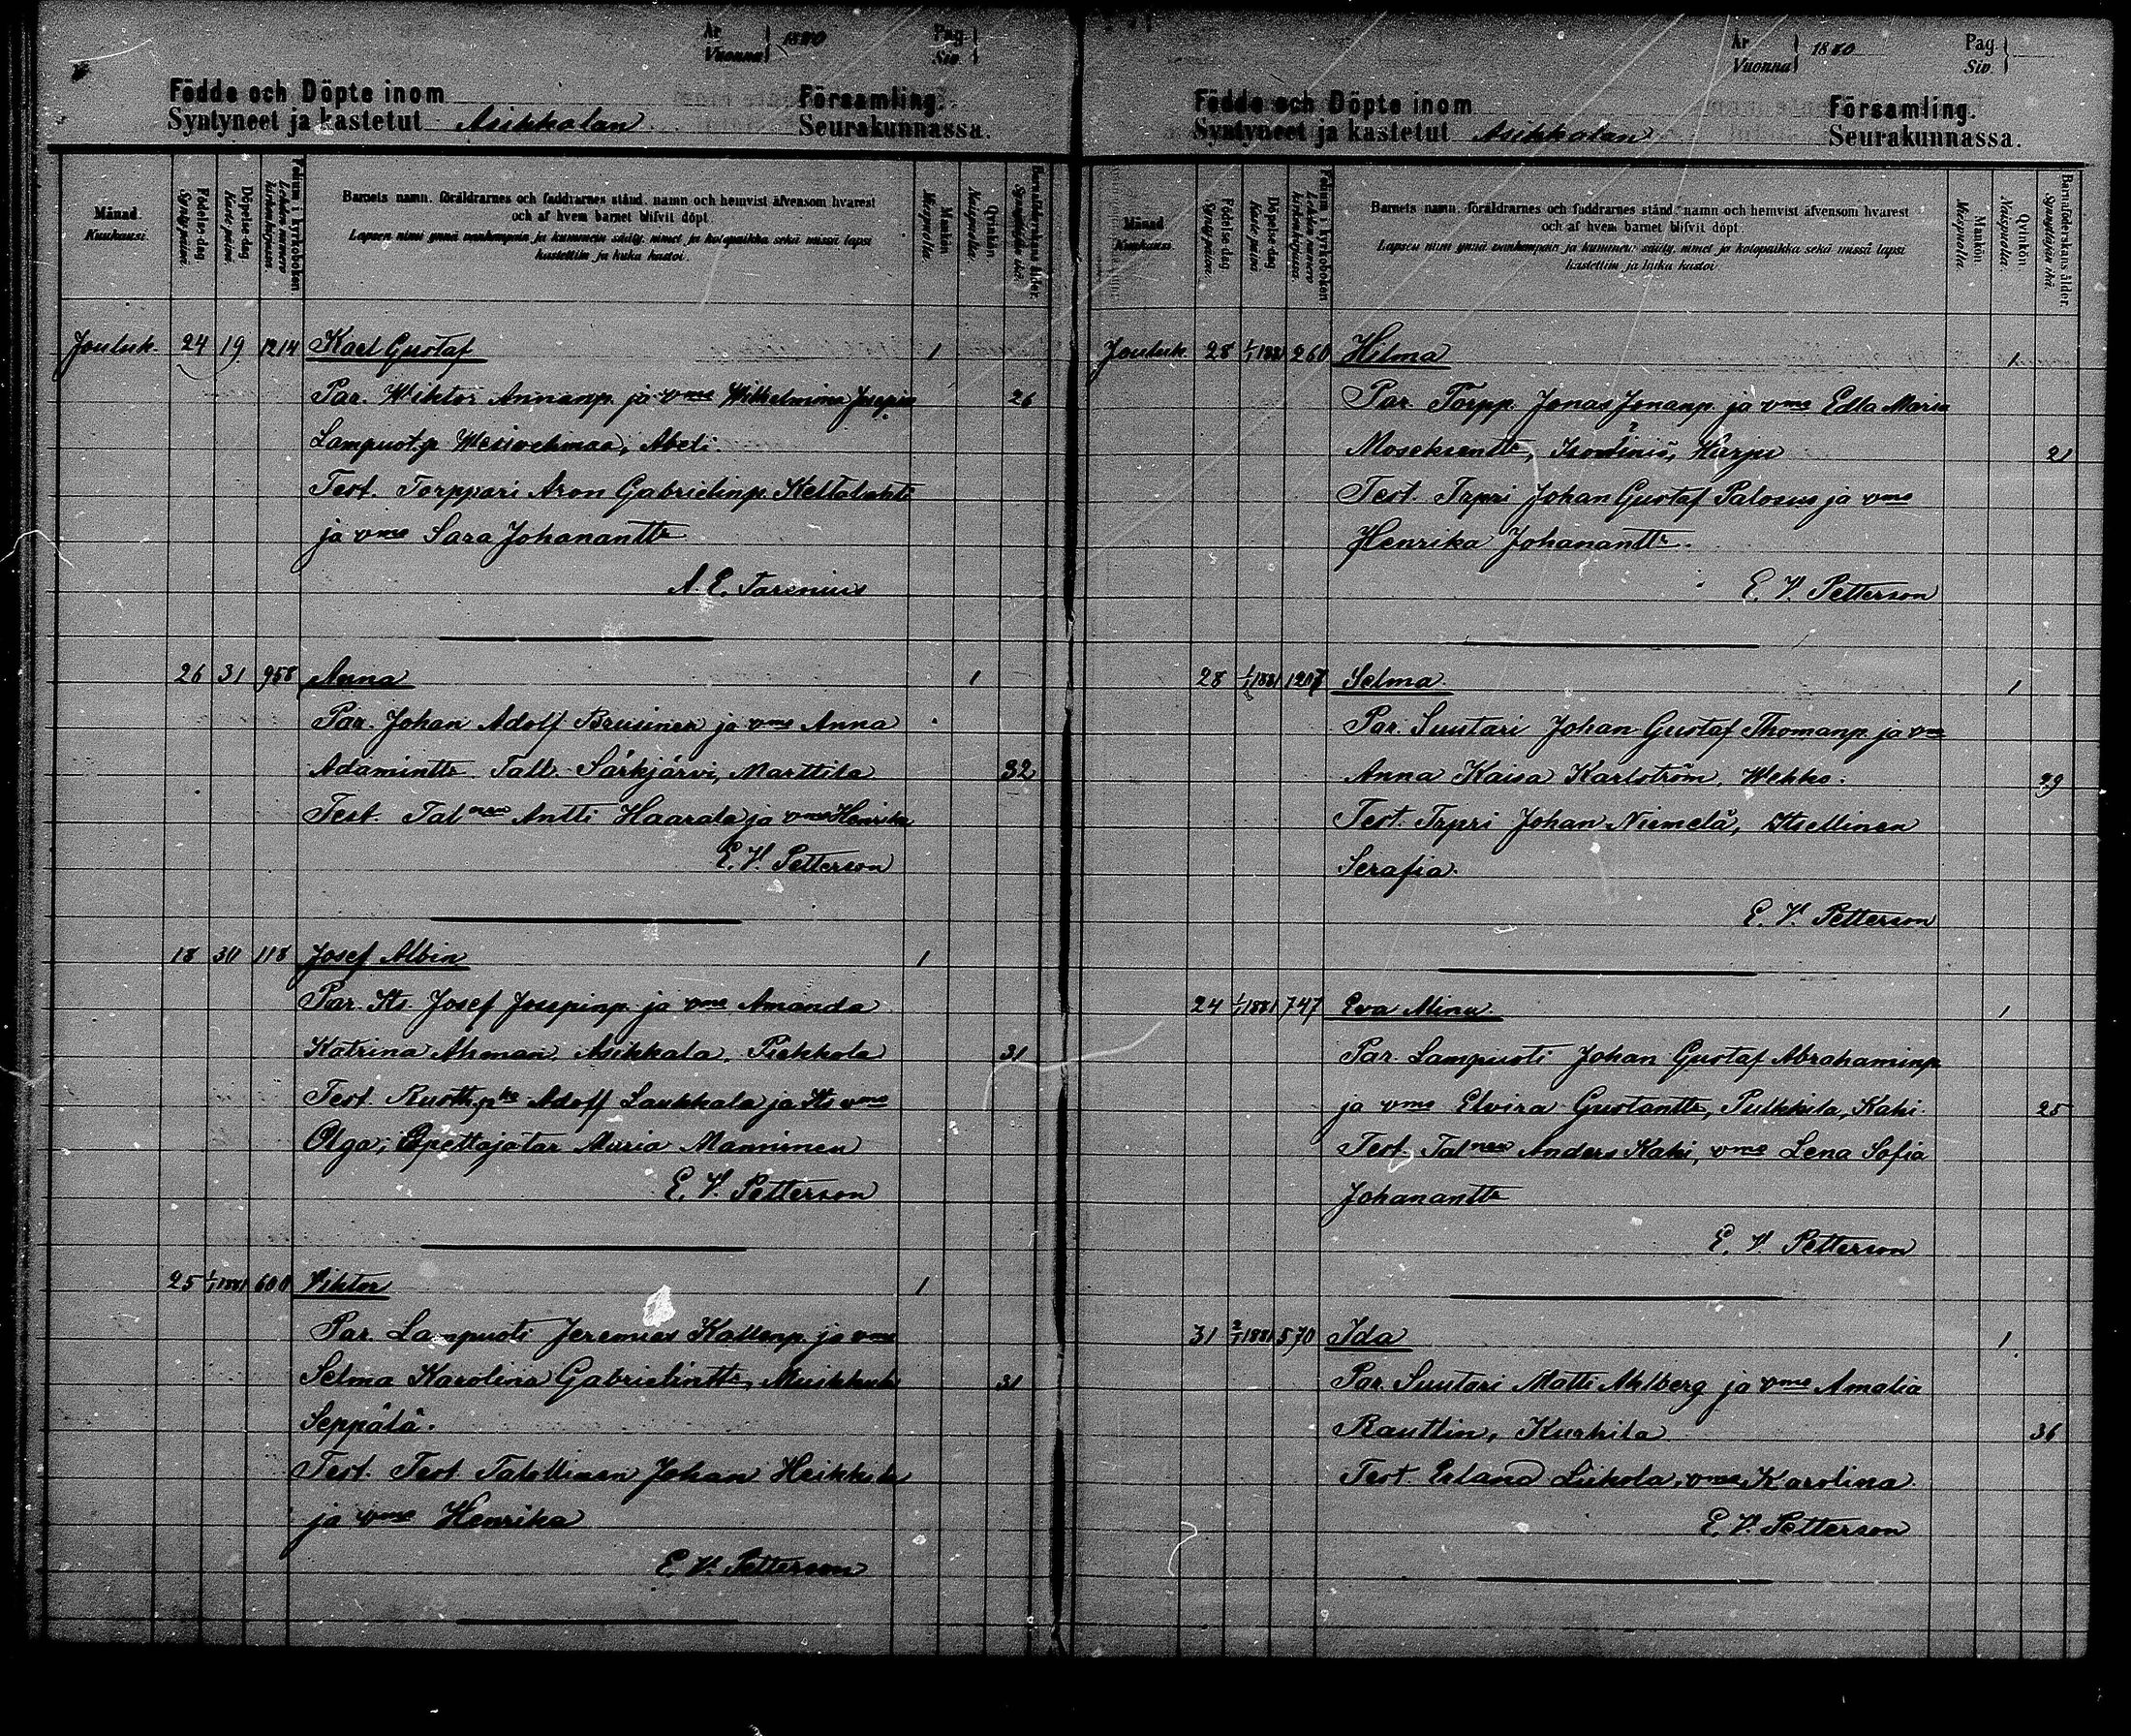 År
Vuonna } 1880
Pag.
Siv. }
Födde och Döpte inom Församling.
Syntyneet ja kastetut Asikkalan Seurakunnassa.
Månad. Kuukausi.
Födelse-dag. Synty päivä.
Döpelse-dag. Kaste päivä.
Folium i kyrkoboken. Lehden numero kirkonkirjassa.
Barnets namn, föräldrarnes och faddrarnes stånd, namn och hemvist äfvensom hvarest
och af hvem barnet blifvit döpt.
Lapsen nimi ynnä vanhempain ja kummein sääty, nimet ja kotopaikka sekä missä lapsi
kastettiin ja kuka kastoi.
Mankön Miespuolia.
Qvinkön Naispuolia.
Barnaföderskans ålder. Synnyttäjän ikä.
Jouluk. 24 19 1214 Karl Gustaf 1
Par. Wiktor Annanp. ja vmo Wilhelmina 26
Lampuot.p Abeli.
Test. Torppari Aron Gabrielinp. Keltalahti
ja vmo Sara Johanantt
A. E. Farenius
26 31 958 Anna 1
Par. Johan Adolf Brusinen ja vmo Anna
Adamintt Tall. Särkjärvi, Marttila 32
Test. Talnen Antti Haarala ja vmo Henrika
E. V. Petterson
18 30 118 Josef Albin 1
Par. Its. Josef Josepinp. ja vmo Amanda
Katrina Ahman, Asikkala, Piekkola 31
Test. Adolf Laukkala ja Its vmo
Olga, Opettajatar Maria Manninen
E. V. Petterson
25 1/1 1881 600 Viktor 1
Par. Lampuoti Jeremias Kallenp. ja vmo
Selma Karolina Gabrielintt, 31
Seppälä.
Test. Test. Talollinen Johan Heikkilä
ja vmo Henrika
E. V. Petterson
År
Vuonna } 1880
Pag.
Siv. }
Födde och Döpte inom Församling.
Syntyneet ja kastetut Asikkalan Seurakunnassa.
Månad Kuukausi.
Födelse-dag. Synty päivä.
Döpelse-dag. Kaste päivä.
Folium i kyrkoboken. Lehden numero kirkonkirjassa.
Barnets namn, föräldrarnes och faddrarnes stånd, namn och hemvist äfvensom hvarest
och af hvem barnet blifvit döpt
Lapsen nimi ynnä vanhempain ja kummein sääty, nimet ja kotopaikka sekä missä lapsi
kastettiin ja kuka kastoi
Mankön Miespuolia.
Qvinkön Naispuolia.
Barnaföderskans ålder. Synnyttäjän ikä.
Jouluk. 28 1/1 1881 260 Hilma 1
Par. Torpp. Jonas Jonanp. ja vmo Edla Maria
Moseksentt, Harju 21
Test. Trpri Johan Gustaf Palosuo ja vmo
Henrika Johanantt.
E. V. Petterson
28 1/1 1881 1207 Selma 1
Par. Suutari Johan Gustaf Thomanp. ja vmo
Anna Kaisa Karlström, 29
Test. Trpri Johan Niemelä, Itsellinen
Serafia.
E. V. Petterson
24 1/1 1881 747 Eva Mina 1
Par. Lampuoti Johan Gustaf Abrahaminp.
ja vmo Elvira Gustantt, Pulkkila, Kahi. 25
Test. Talnen Anders Kahi, vmo Lena Sofia
Johanantt
E. V. Petterson
31 2/1 1881 570 Ida 1
Par. Suutari Matti Ahlberg ja vmo Amalia
Rauttin, Kurhila 36
Test. Erland Liikola, vmo Karolina.
E. V. Petterson